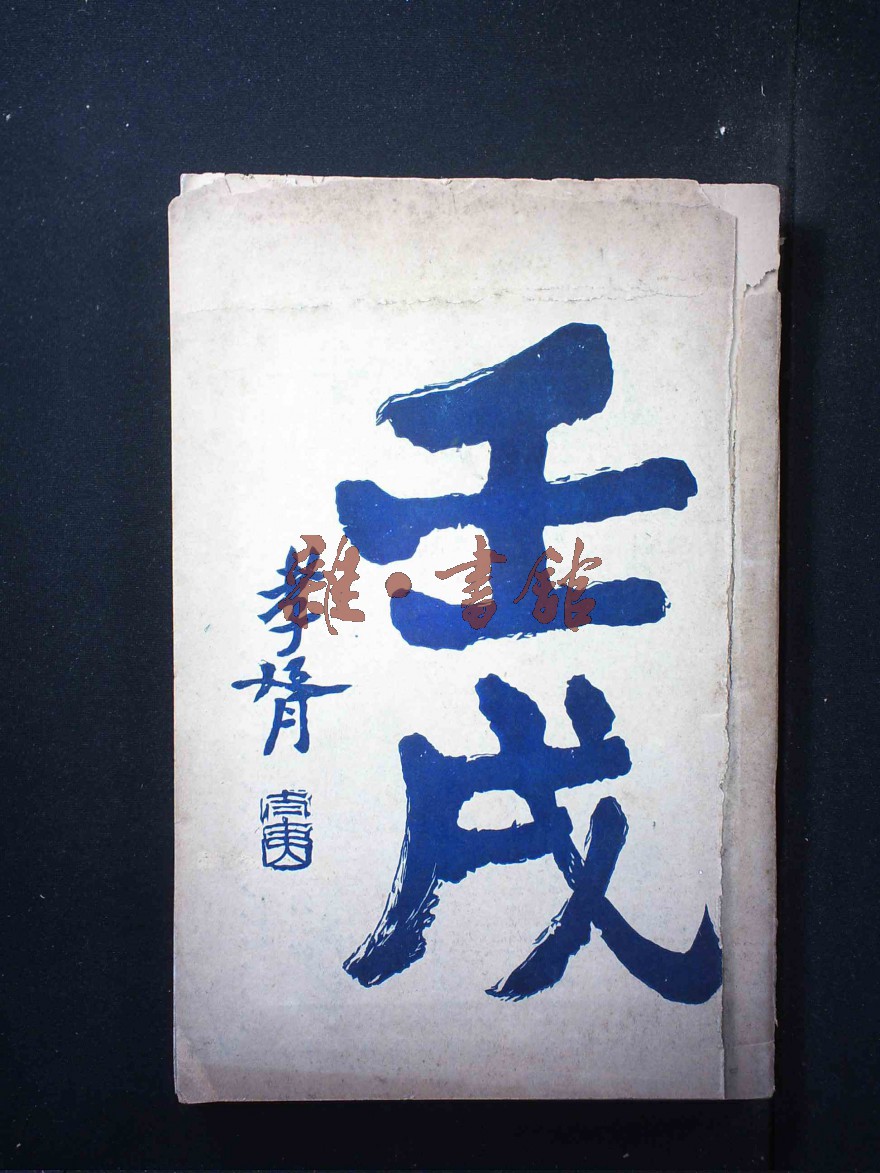 壬戌
孝胥
雜·書館